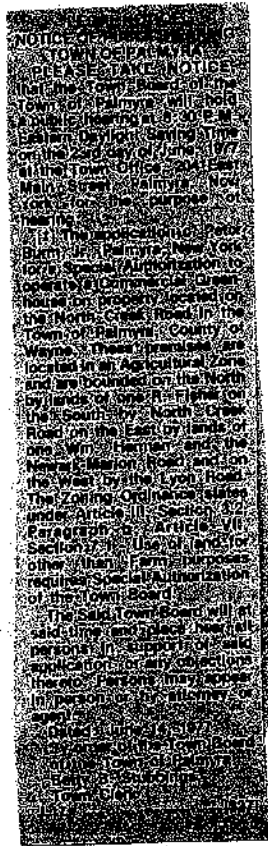 NOTICE OF
TOWN OF PALMYRA
PLEASE TAKE NOTICE
that the Town Board of the
Town of Palmyra will hold
a public hearing at P.M.
Eastern Daylight Saving Time
on the day of June, 1977
at the Town Office, East
Main Street, Palmyra, New
York for the purpose of
hearing:
The application of Peter
Palmyra New York
for a Special Authorization to
operate a Commercial Green
house on property located on
the North Creek Road in the
Town of Palmyra, County of
Wayne. These premises are
located in an Agricultural Zone
and are bounded on the North
by lands of one R. Fisher on
the South by North Creek
Road on the East by lands of
one Wm. and the
Newark-Marion Road and on
the West by the Lyon Road.
The Zoning Ordinance states
under Article III, Section
Paragraph Article VII
Section Use of land for
other than Farm purposes
requires Special Authorization
of the Town Board.
The Said Town Board will at
said time and place hear all
persons in support of said
application or any objections
thereto. Persons may appear
in person or by attorney or
agent.
Dated: June 14, 1977
By order of the Town Board
of the Town of Palmyra
Betty B.
Town Clerk